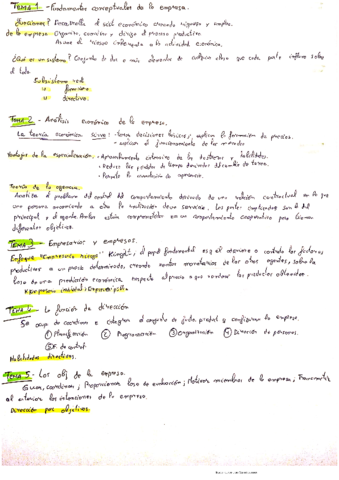 TEMA 1 - Fundamentos conceptuales de la empresa.
¿Funciones? Encuentra el social económico creando riqueza y empleo.
de la empresa Organiza, coordina y dirige el proceso productivo
Asume el riesgo inherente a la actividad económica.
¿Qué es un sistema? Conjunto de dos o más elementos de cualquier clase que cada parte influye sobre
el todo
Subsistema real
u financiero
u directivo.
TEMA 2 - Análisis económico de la empresa.
La teoría económica sirve: - tomar decisiones, explica la formación de precios.
- explicar el funcionamiento de los mercados
Ventajas de la especialización: - Aprovechamiento intensivo de las destrezas y habilidades.
- Reduce las pérdidas de tiempo derivadas del cambio de tareas.
- Permite la de operarios.
Teoría de la agencia.
Analiza el problema del control del comportamiento derivado de una relación contractual en la que
una persona encomienda a otra la realización de un servicio. Las partes implicadas son el
principal y el agente. Ambos están comprometidos en un comportamiento cooperativo pero tienen
diferentes objetivos.
TEMA 3 - Empresarios y empresas.
Enfoque "Empresario riesgo" Knight, el papel fundamental es el obtener o controlar los factores
productivos a un precio determinado, creando rentas monetarias de los otros agentes, sobre la
base de una predicción económica respecto al precio que vendan los productos obtenidos.
TEMA 4 La función de dirección
Se ocupa de coordinar e integrar el conjunto de que configuran la empresa.
① Planificación ② Programación ③ Organización ④ Dirección de personas.
⑤ F. de control.
Habilidades directivas.
TEMA 5 - Los obj de la empresa.
Guiar, coordinar; Proporcionar base de evaluación; Motivar miembros de la empresa; Transmitir
al exterior las intenciones de la empresa.
Dirección por objetivos.